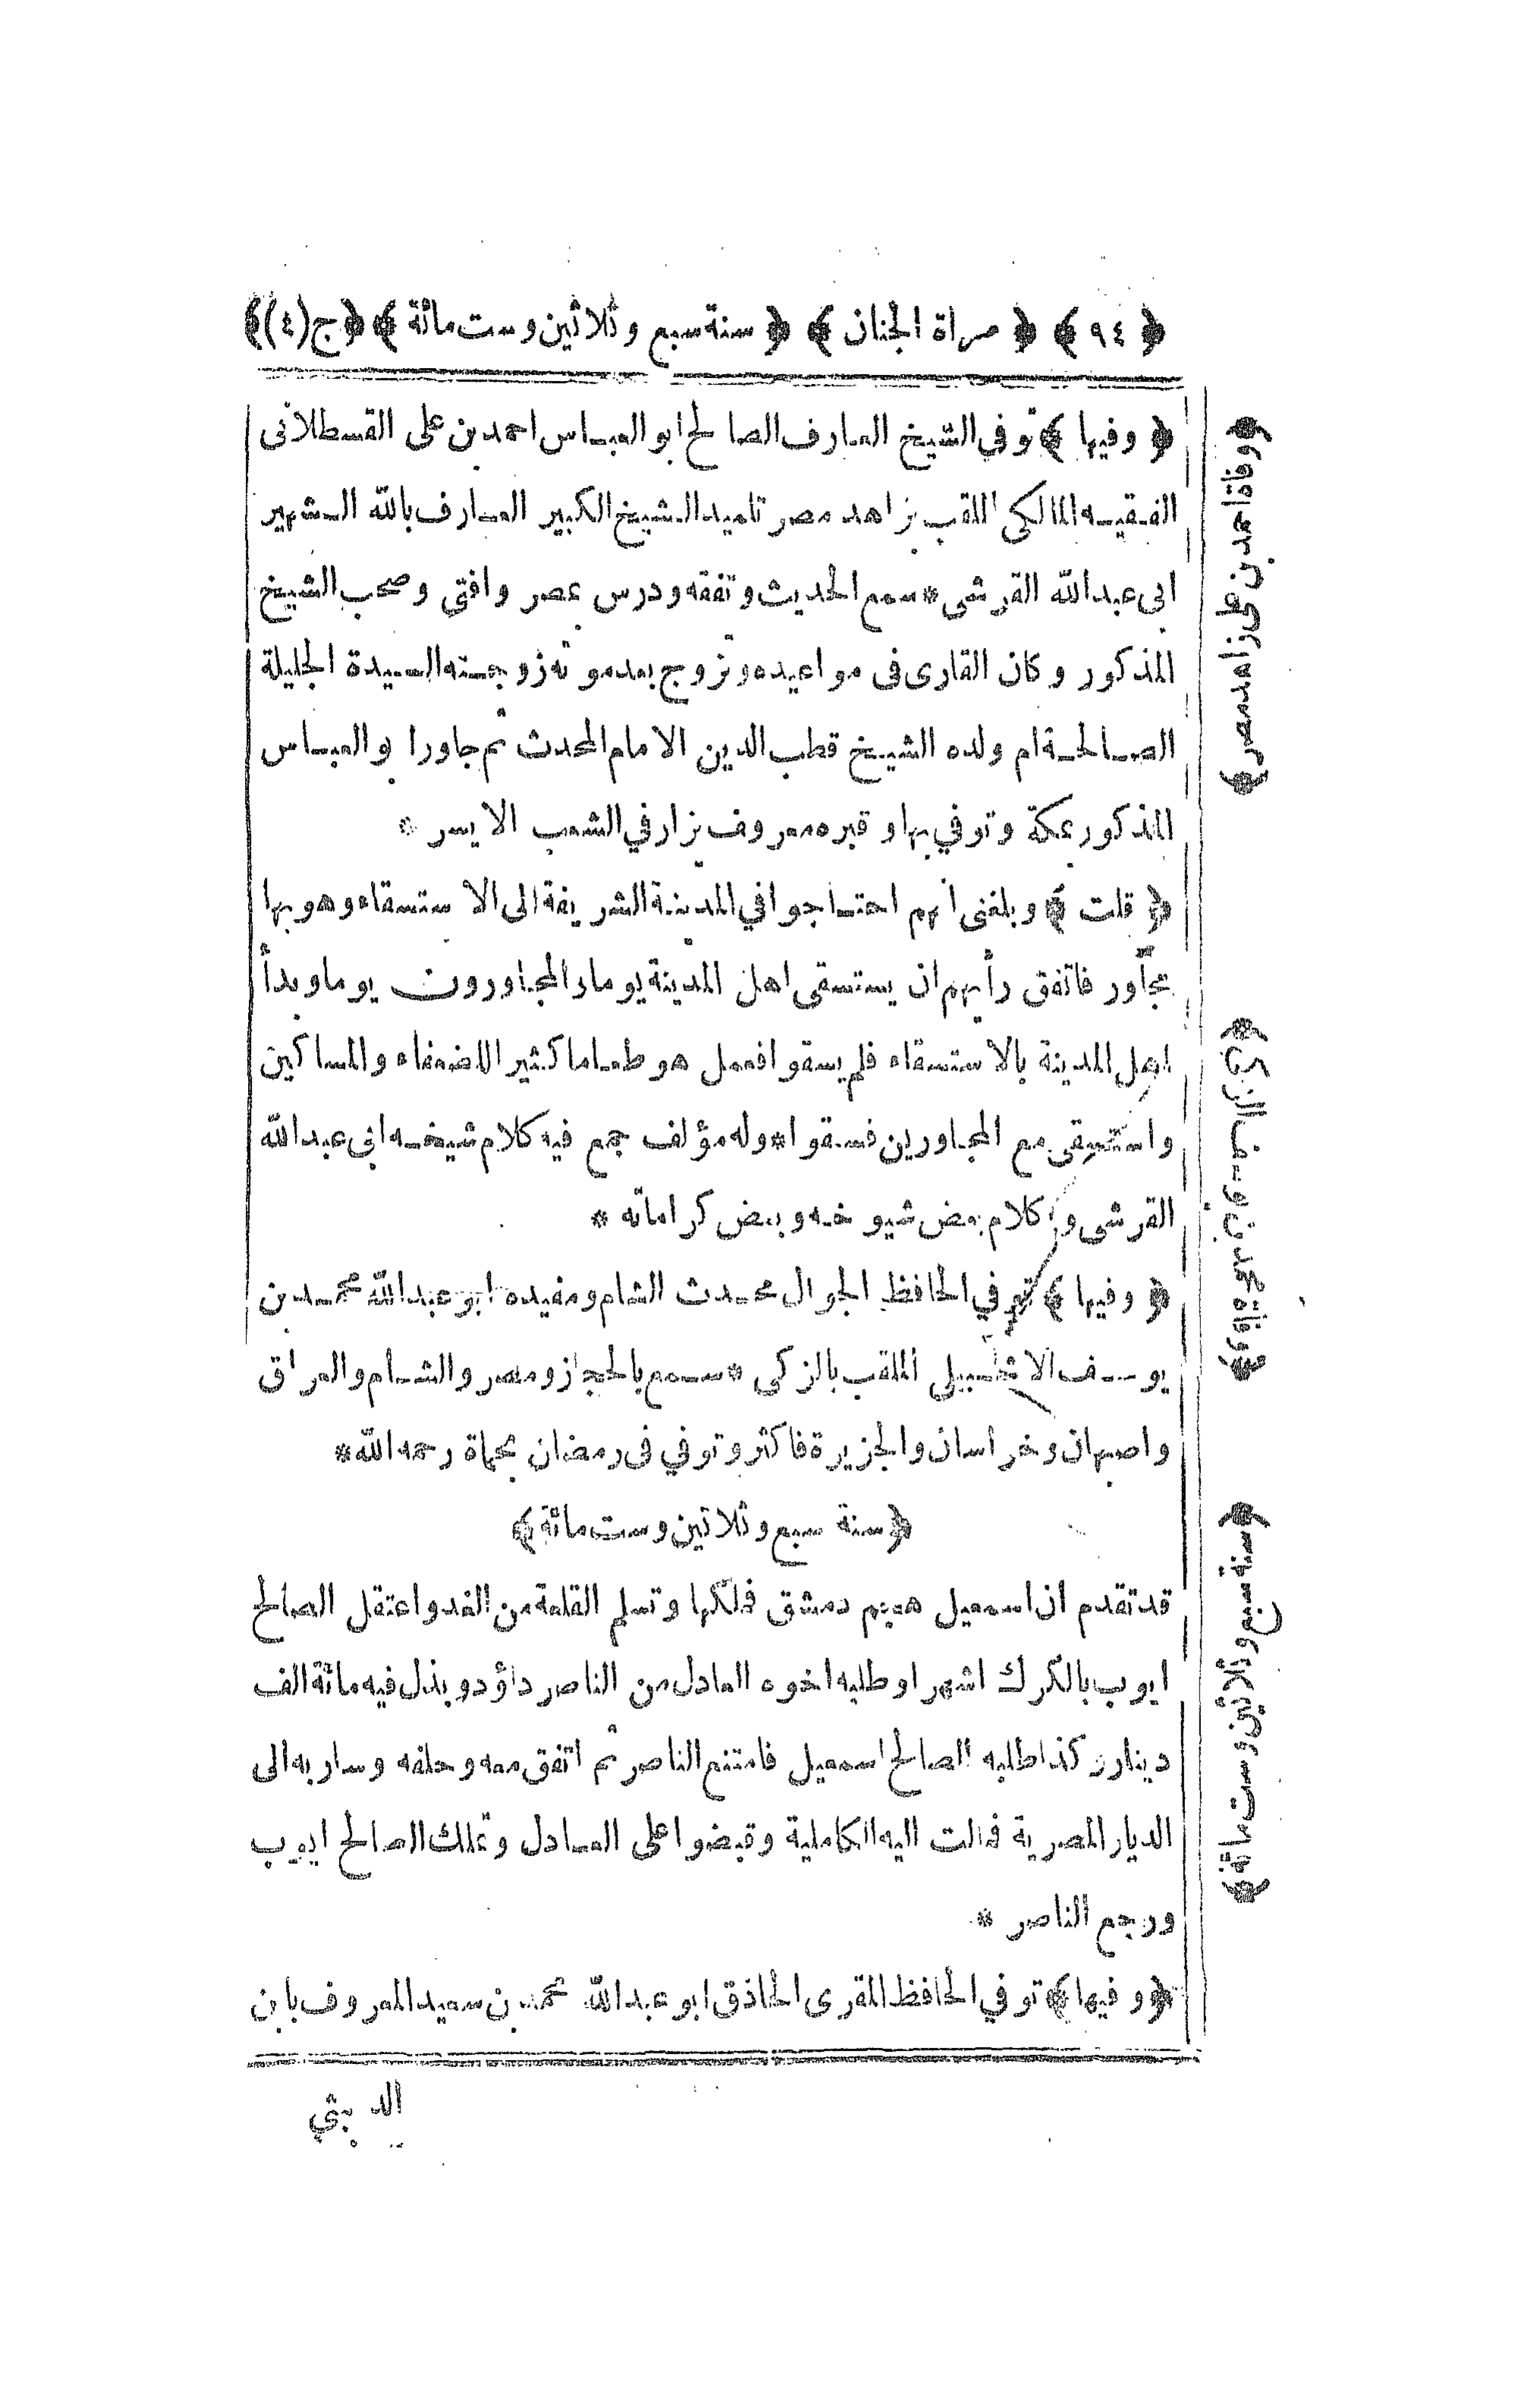 ﴿ ٩٤ ﴾ ﴿ مرأة الجنان ﴾ ﴿ سنة سبع وثلاثين وست مائة ﴾ ﴿ ج (٤) ﴾
﴿ وفيها ﴾ توفي الشيخ العارف الصالح ابو العباس احمد بن على القسطلانى
الفقيه المالكى الملقب بزاهد مصر تلميد الشيخ الكبير العارف بالله الشهير
ابى عبد الله القرشى * سمع الحديث وتفقه ودرس بمصر وافتى وصحب الشيخ
المذكور وكان القارى فى مواعيده وتزوج بعد موته زوجته السيدة الجليلة
الصالحة ام ولده الشيخ قطب الدين الامام المحدث ثم جاور ابو العباس
المذكور بمكة وتوفي بها وقبره معروف يزار في الشعب الايسر *
﴿ قلت ﴾ وبلغنى انهم احتاجوا في المدينة الشريفة الى الاستسقاء وهو بها
مجاور فاتفق رأيهم ان يستسقى اهل المدينة يوما والمجاورون يوما وبدأ
اهل المدينة بالاستسقاء فلم يسقوا فعمل هو طعاما كثيرا للضعفاء والمساكين
واستسقى مع المجاورين فسقوا * وله مؤلف جمع فيه كلام شيخه ابى عبد الله
القرشى وكلام بعض شيوخه وبعض كراماته *
﴿ وفيها ﴾ توفي الحافظ الجوال محدث الشام ومفيده ابو عبد الله محمد بن
يوسف الاشبيلى الملقب بالزكى * سمع بالحجاز ومصر والشام والعراق
واصبهان وخراسان والجزيرة فاكثر وتوفي فى رمضان بحماة رحمه الله *
﴿ سنة سبع وثلاثين وست مائة ﴾
قد تقدم ان اسمعيل هجم دمشق فملكها وتسلم القلعة من الغد واعتقل الصالح
ايوب بالكرك اشهرا وطلبه اخوه العادل من الناصر داؤد وبذل فيه مائة الف
دينار وكذا طلبه الصالح اسمعيل فامتنع الناصر ثم اتفق معه وحلفه وسار به الى
الديار المصرية فمالت اليه الكاملية وقبضوا على العادل وتملك الصالح ايوب
ورجع الناصر *
﴿ وفيها ﴾ توفي الحافظ المقرى الحاذق ابو عبد الله محمد بن سعيد المعروف بابن
الدبيثي
﴿ وفاة احمد بن على زاهد مصر ﴾
﴿ وفاة محمد بن يوسف الزكى ﴾
﴿ سنة سبع وثلاثين وست مائة ﴾